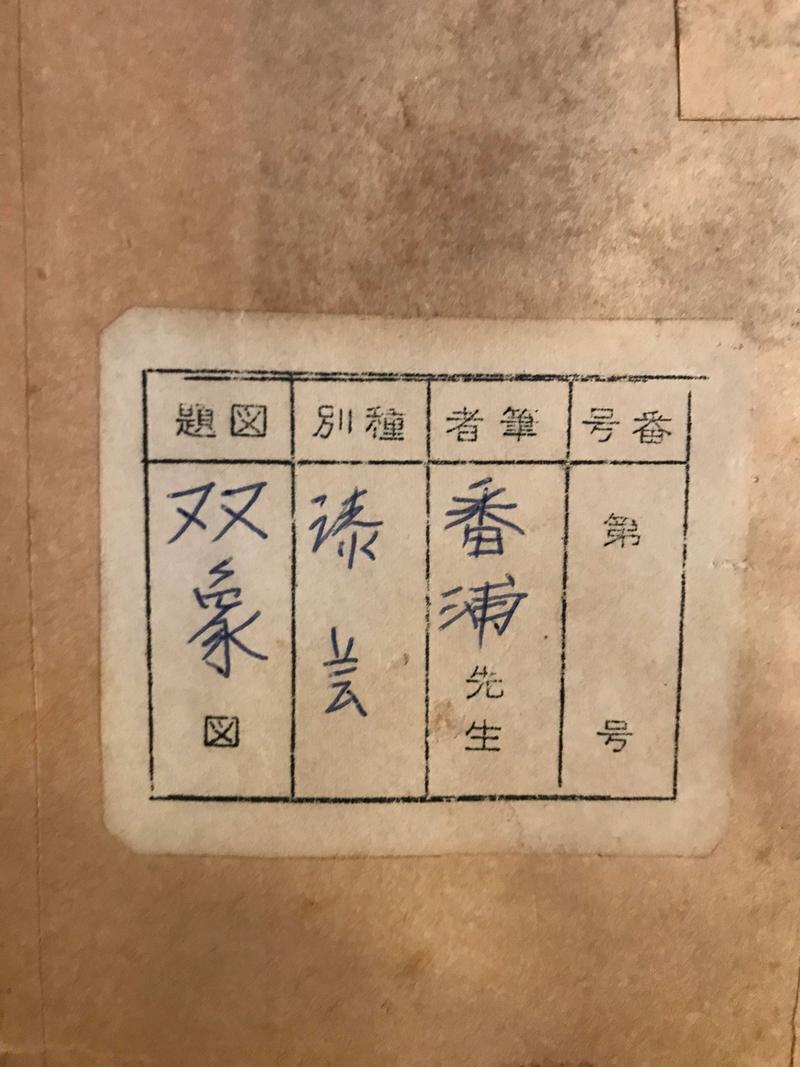 番号
第 号
筆者
番浦先生
種別
漆芸
図題
双象図